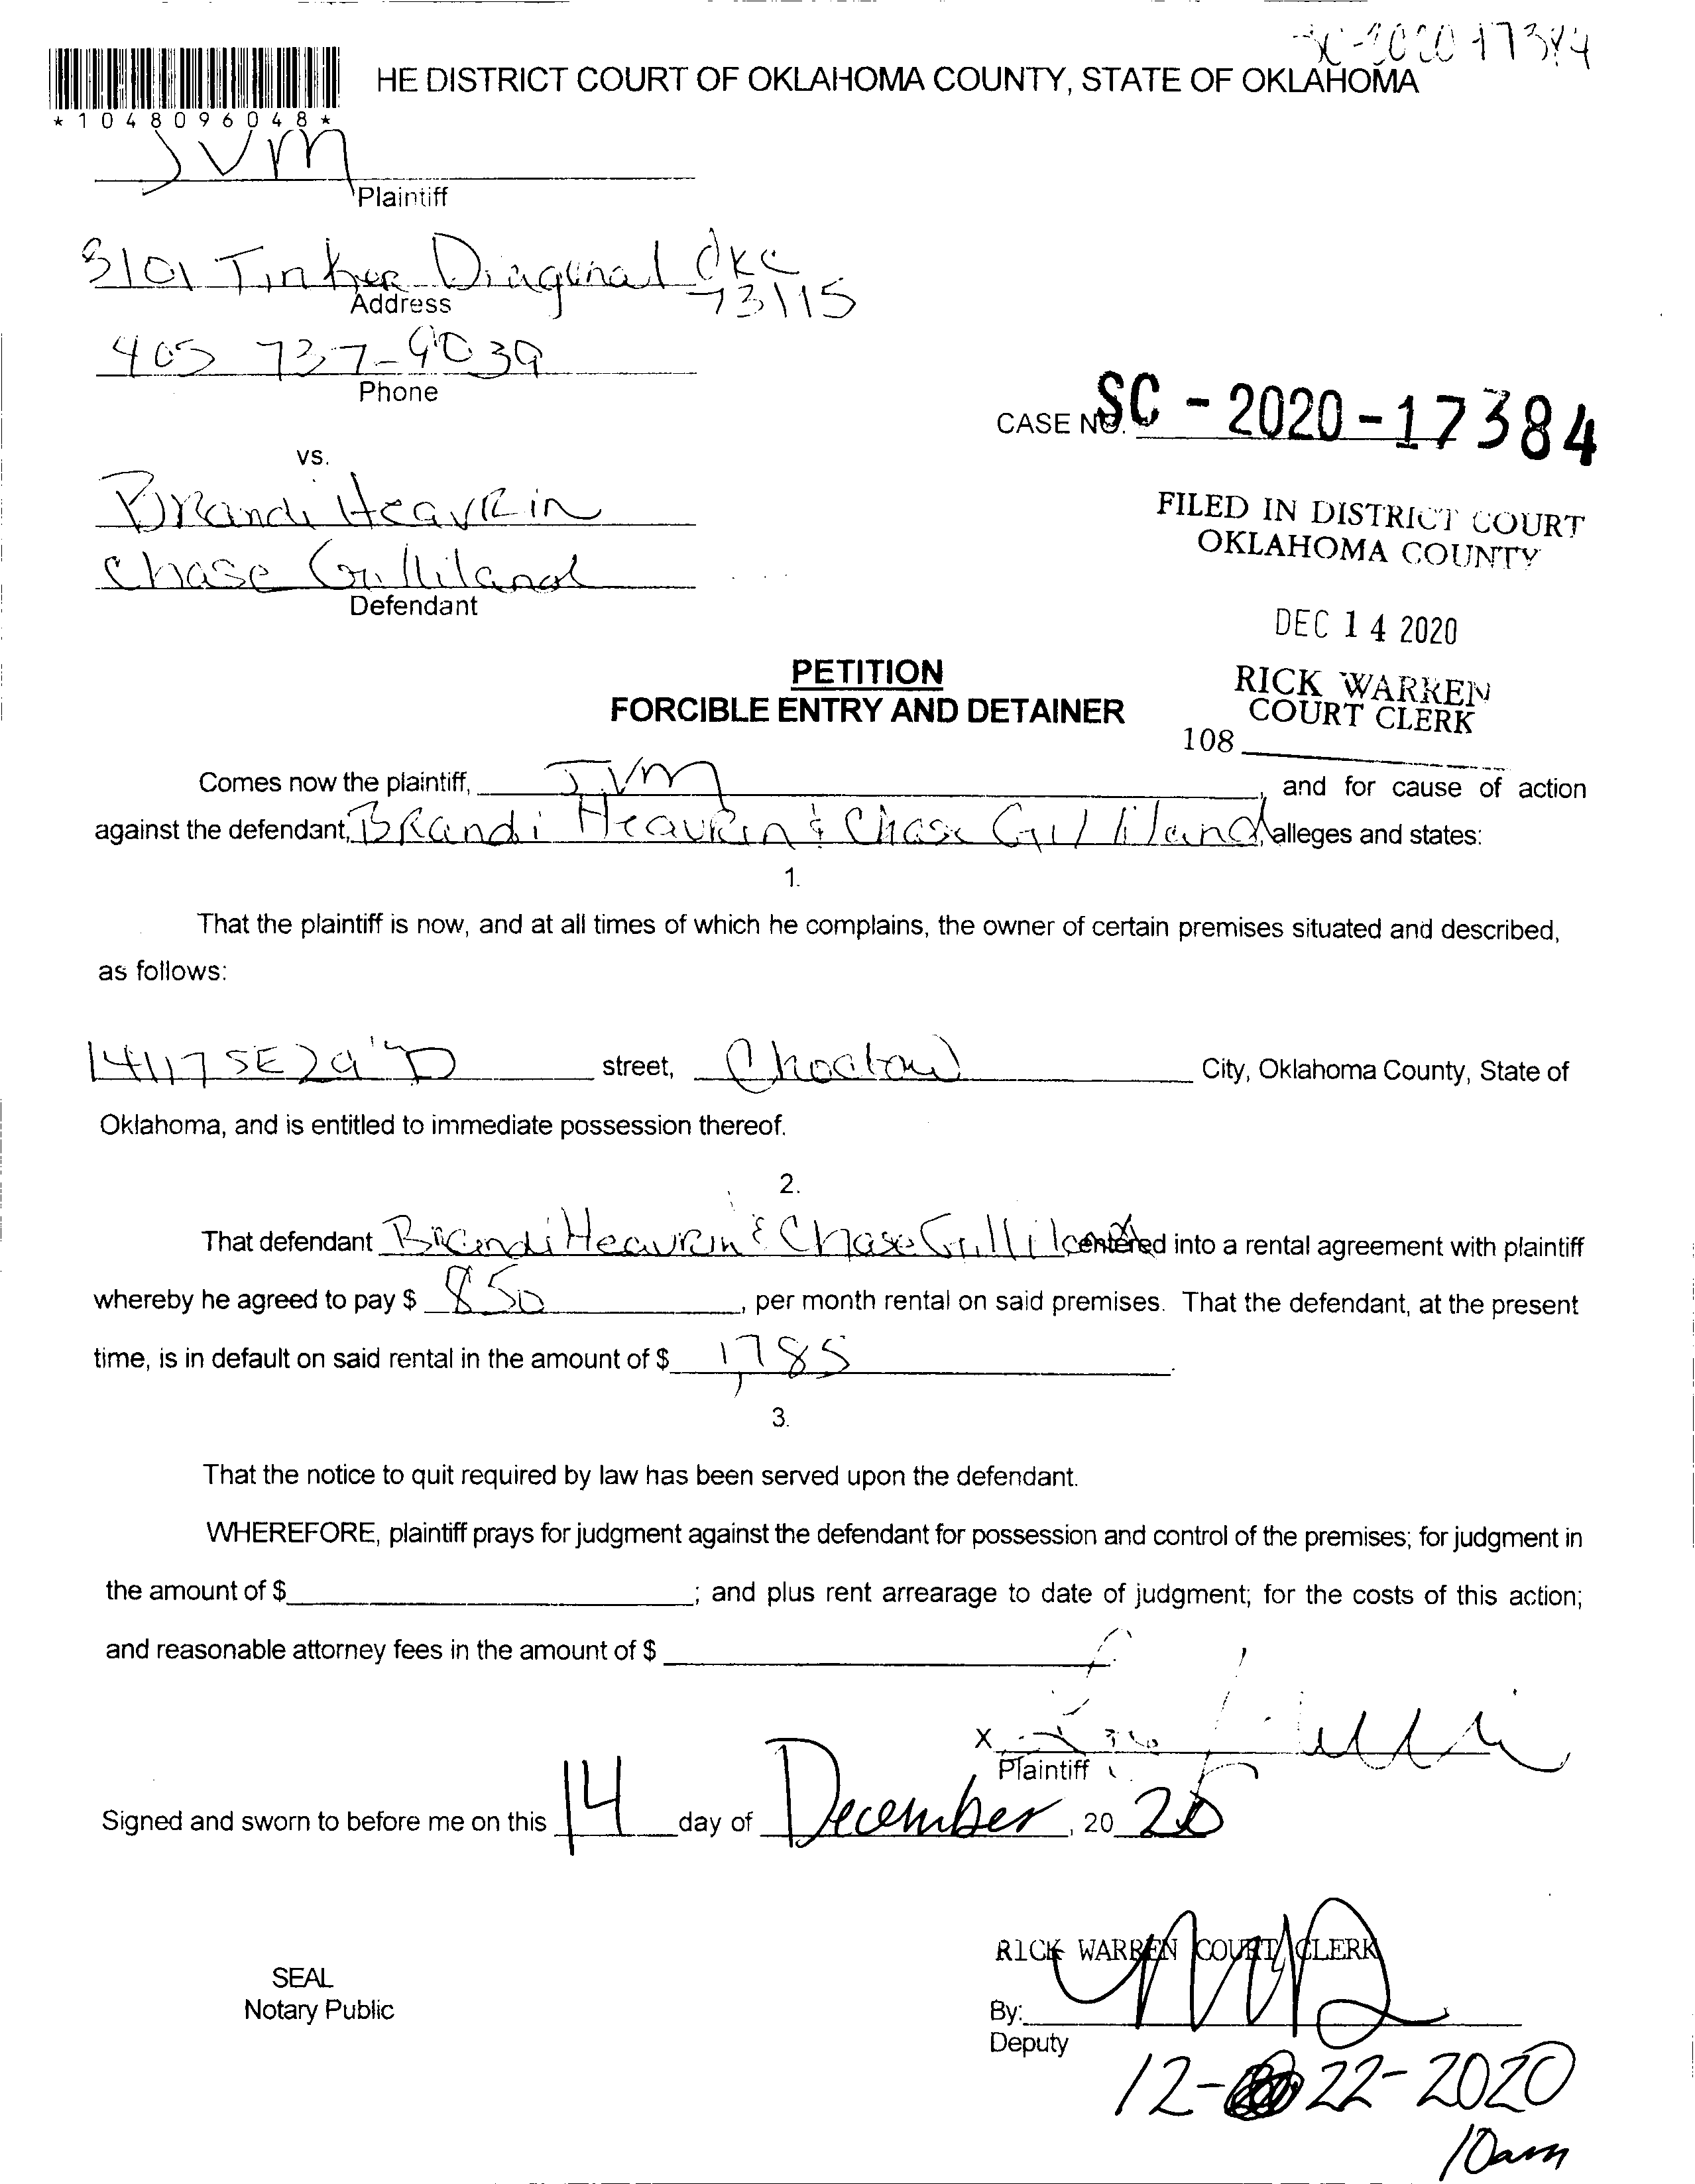 SC-2020 17384
HE DISTRICT COURT OF OKLAHOMA COUNTY, STATE OF OKLAHOMA
*1048096048*
JVM
Plaintiff
3101 Tinker Diagonal OKC
73115
Address
405 737-9039
Phone
CASE NO. SC - 2020 - 17384
vs.
Brandi Heavrin
FILED IN DISTRICT COURT
OKLAHOMA COUNTY
Chase Gilliland
Defendant
DEC 14 2020
PETITION
FORCIBLE ENTRY AND DETAINER
RICK WARREN
COURT CLERK
108
Comes now the plaintiff, JVM, and for cause of action
against the defendant, Brandi Heavrin & Chase Gilliland, alleges and states:
1.
That the plaintiff is now, and at all times of which he complains, the owner of certain premises situated and described,
as follows:
14117 SE 29th D street, Choctaw City, Oklahoma County, State of
Oklahoma, and is entitled to immediate possession thereof.
2.
That defendant Brandi Heavrin & Chase Gilliland entered into a rental agreement with plaintiff
whereby he agreed to pay $ 850, per month rental on said premises. That the defendant, at the present
time, is in default on said rental in the amount of $ 1,785.
3.
That the notice to quit required by law has been served upon the defendant.
WHEREFORE, plaintiff prays for judgment against the defendant for possession and control of the premises; for judgment in
the amount of $ ; and plus rent arrearage to date of judgment; for the costs of this action;
and reasonable attorney fees in the amount of $ .
X
Plaintiff
Signed and sworn to before me on this 14 day of December, 20 20
RICK WARREN COURT CLERK
SEAL
Notary Public
By:
Deputy
12- 22-2020
10am